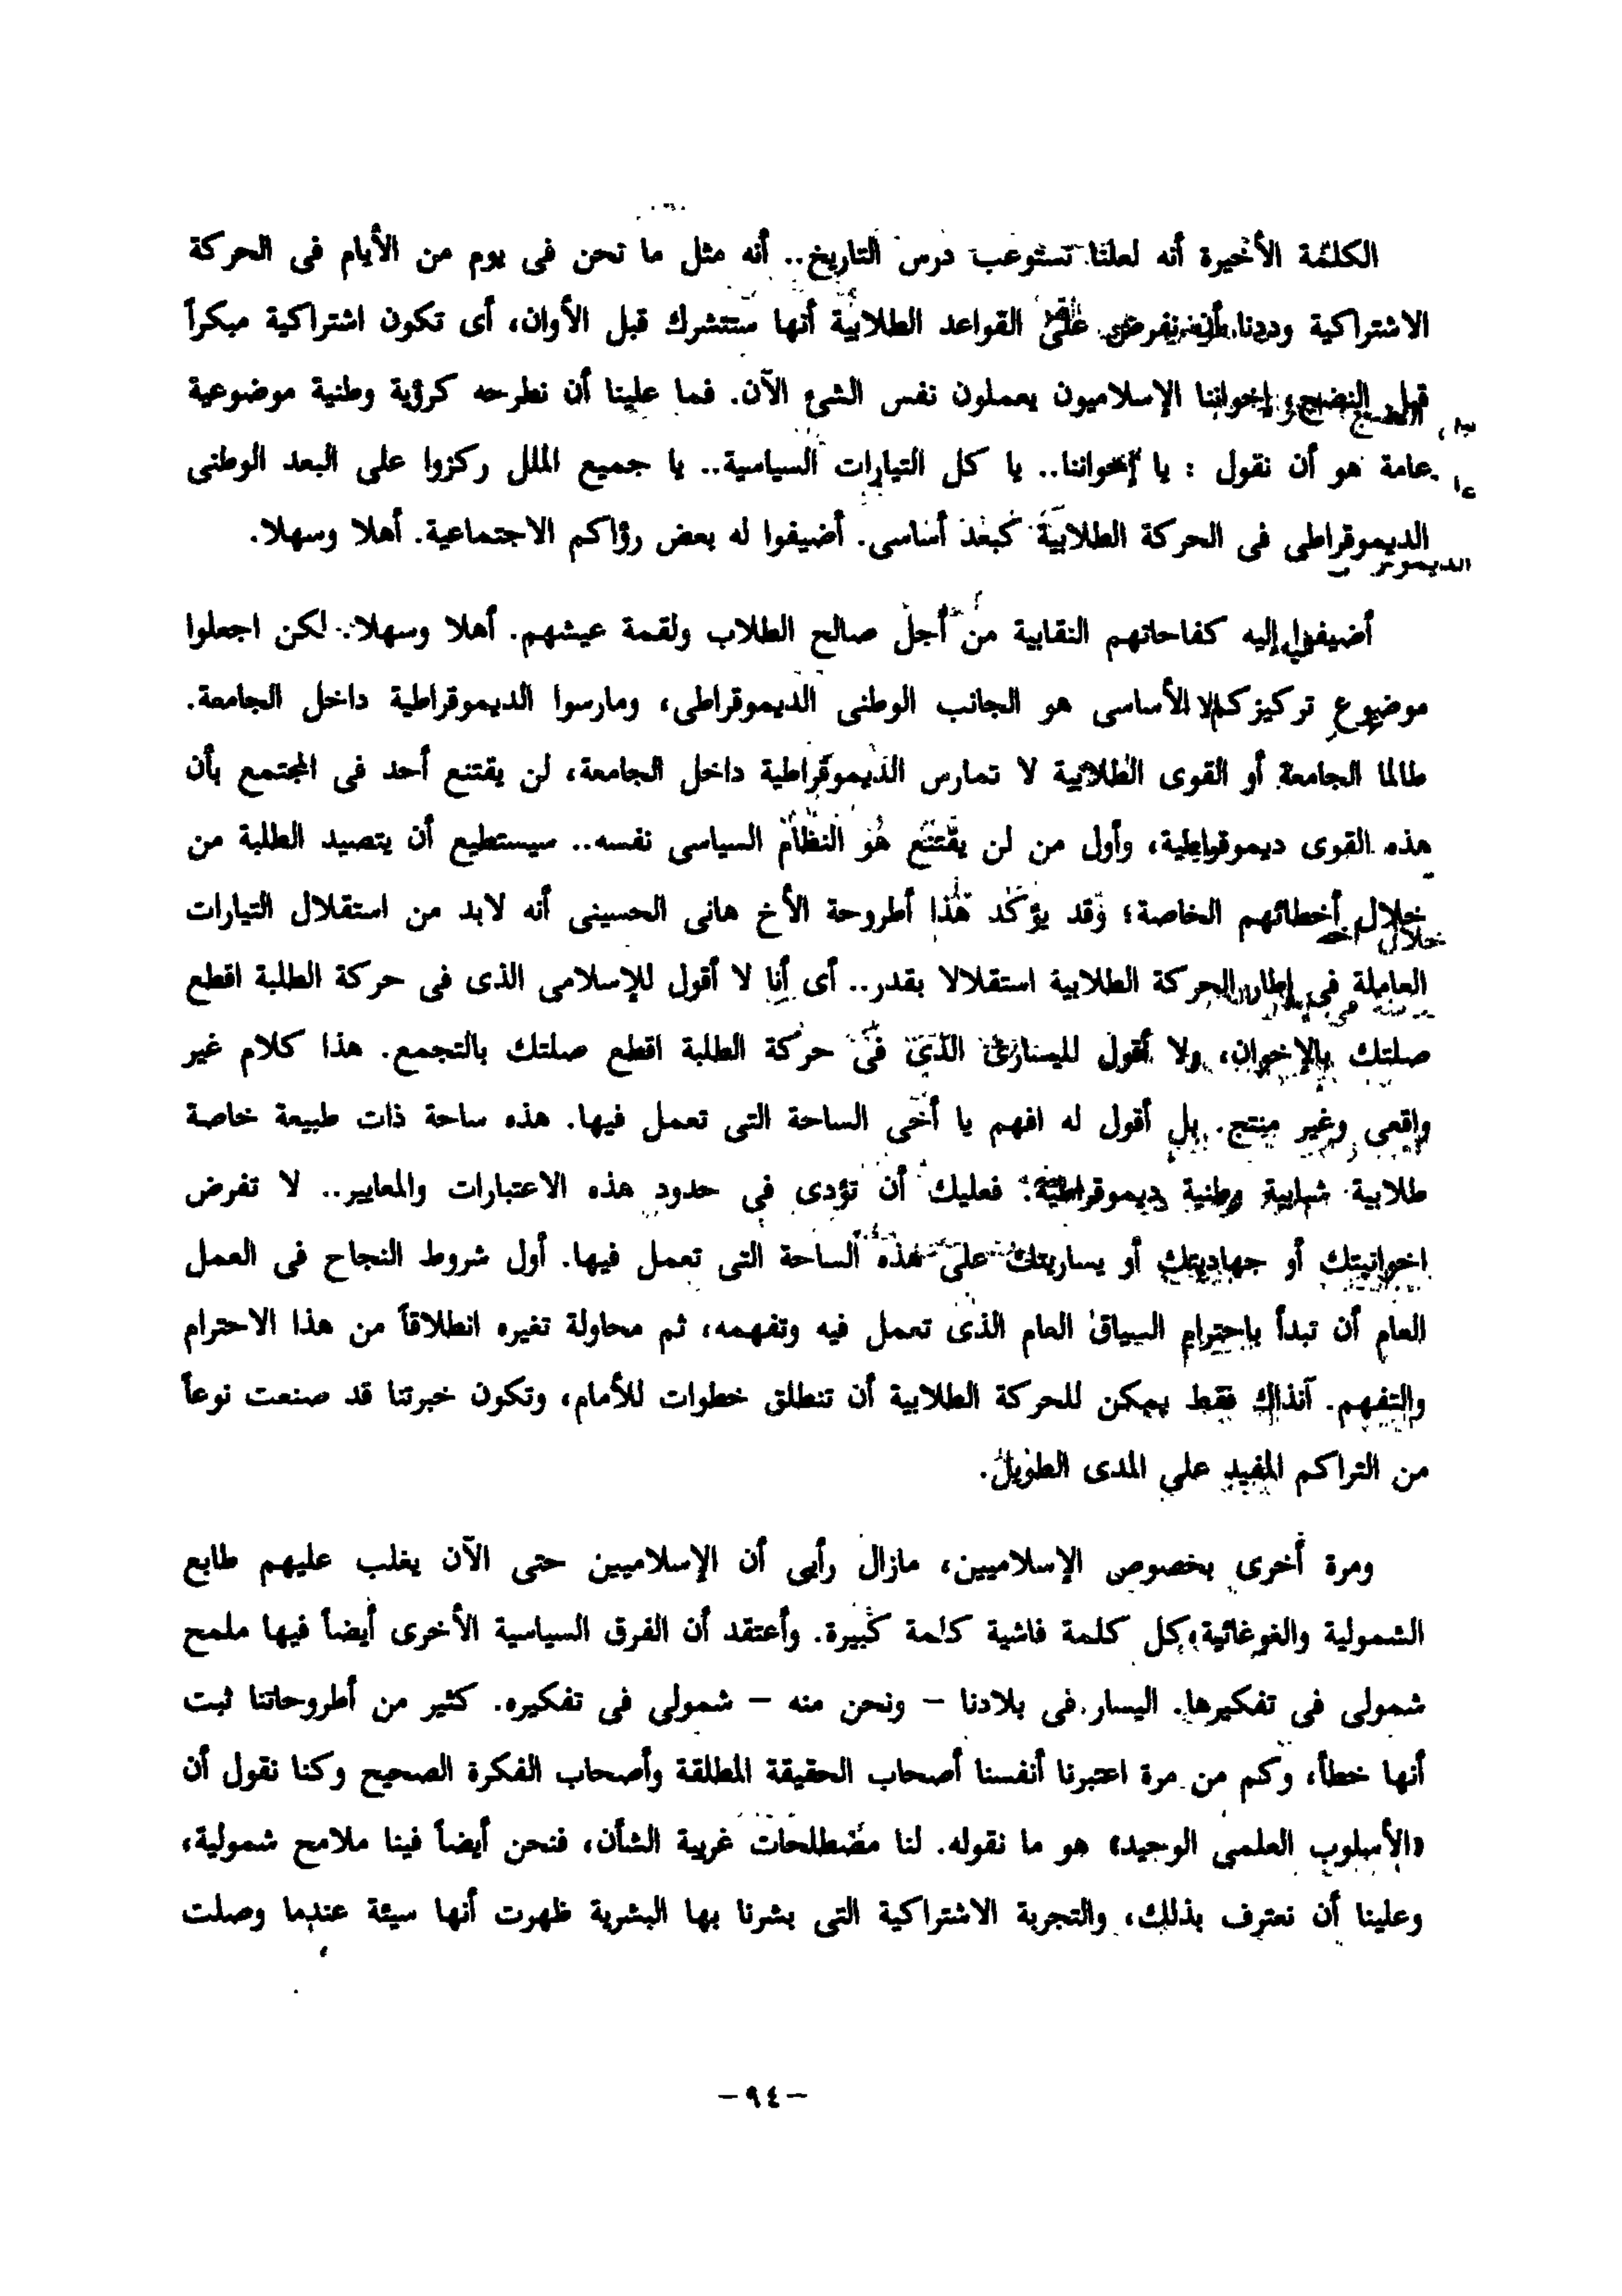 الكلمة الأخيرة أنه لعلنا تستوعب درس التاريخ.. أنه مثل ما نحن فى يوم من الأيام فى الحركة
الاشتراكية وددنا أن نفرض على القواعد الطلابية أنها ستتشرك قبل الأوان، أى تكون اشتراكية مبكراً
قبل النضج، إخواننا الإسلاميون يعملون نفس الشئ الآن. فما علينا أن نطرحه كرؤية وطنية موضوعية
عامة هو أن نقول : يا إخواننا.. يا كل التيارات السياسية.. يا جميع الملل ركزوا على البعد الوطنى
الديموقراطى فى الحركة الطلابية كبعد أساسى. أضيفوا له بعض رؤاكم الاجتماعية. أهلا وسهلا.
أضيفوا إليه كفاحاتهم النقابية من أجل صالح الطلاب ولقمة عيشهم. أهلا وسهلا.. لكن اجعلوا
موضوع تركيزكم الأساسى هو الجانب الوطنى الديموقراطى، ومارسوا الديموقراطية داخل الجامعة.
طالما الجامعة أو القوى الطلابية لا تمارس الديموقراطية داخل الجامعة، لن يقتنع أحد فى المجتمع بأن
هذه القوى ديموقراطية، وأول من لن يقتنع هو النظام السياسى نفسه.. سيستطيع أن يتصيد الطلبة من
خلال أخطائهم الخاصة؛ وقد يؤكد هذا أطروحة الأخ هانى الحسينى أنه لابد من استقلال التيارات
العاملة فى إطار الحركة الطلابية استقلالا بقدر.. أى أنا لا أقول للإسلامى الذى فى حركة الطلبة اقطع
صلتك بالإخوان، ولا أقول لليسارى الذى فى حركة الطلبة اقطع صلتك بالتجمع. هذا كلام غير
واقعى وغير منتج. بل أقول له افهم يا أخى الساحة التى تعمل فيها. هذه ساحة ذات طبيعة خاصة
طلابية شبابية وطنية ديموقراطية؛ فعليك أن تؤدى فى حدود هذه الاعتبارات والمعايير.. لا تفرض
اخوانيتك أو جهاديتك أو يساريتك على هذه الساحة التى تعمل فيها. أول شروط النجاح فى العمل
العام أن تبدأ باحترام السياق العام الذى تعمل فيه وتفهمه، ثم محاولة تغيره انطلاقاً من هذا الاحترام
والتفهم. آنذاك فقط يمكن للحركة الطلابية أن تنطلق خطوات للأمام، وتكون خبرتنا قد صنعت نوعاً
من التراكم المفيد على المدى الطويل.
ومرة أخرى بخصوص الإسلاميين، مازال رأيى أن الإسلاميين حتى الآن يغلب عليهم طابع
الشمولية والغوغائية، كل كلمة فاشية كلمة كبيرة. وأعتقد أن الفرق السياسية الأخرى أيضاً فيها ملمح
شمولى فى تفكيرها. اليسار فى بلادنا – ونحن منه – شمولى فى تفكيره. كثير من أطروحاتنا ثبت
أنها خطأ، وكم من مرة اعتبرنا أنفسنا أصحاب الحقيقة المطلقة وأصحاب الفكرة الصحيح وكنا نقول أن
«الأسلوب العلمى الوحيد» هو ما نقوله. لنا مصطلحات غريبة الشأن، فنحن أيضاً فينا ملامح شمولية،
وعلينا أن نعترف بذلك، والتجربة الاشتراكية التى بشرنا بها البشرية ظهرت أنها سيئة عندما وصلت
– ٩٤ –